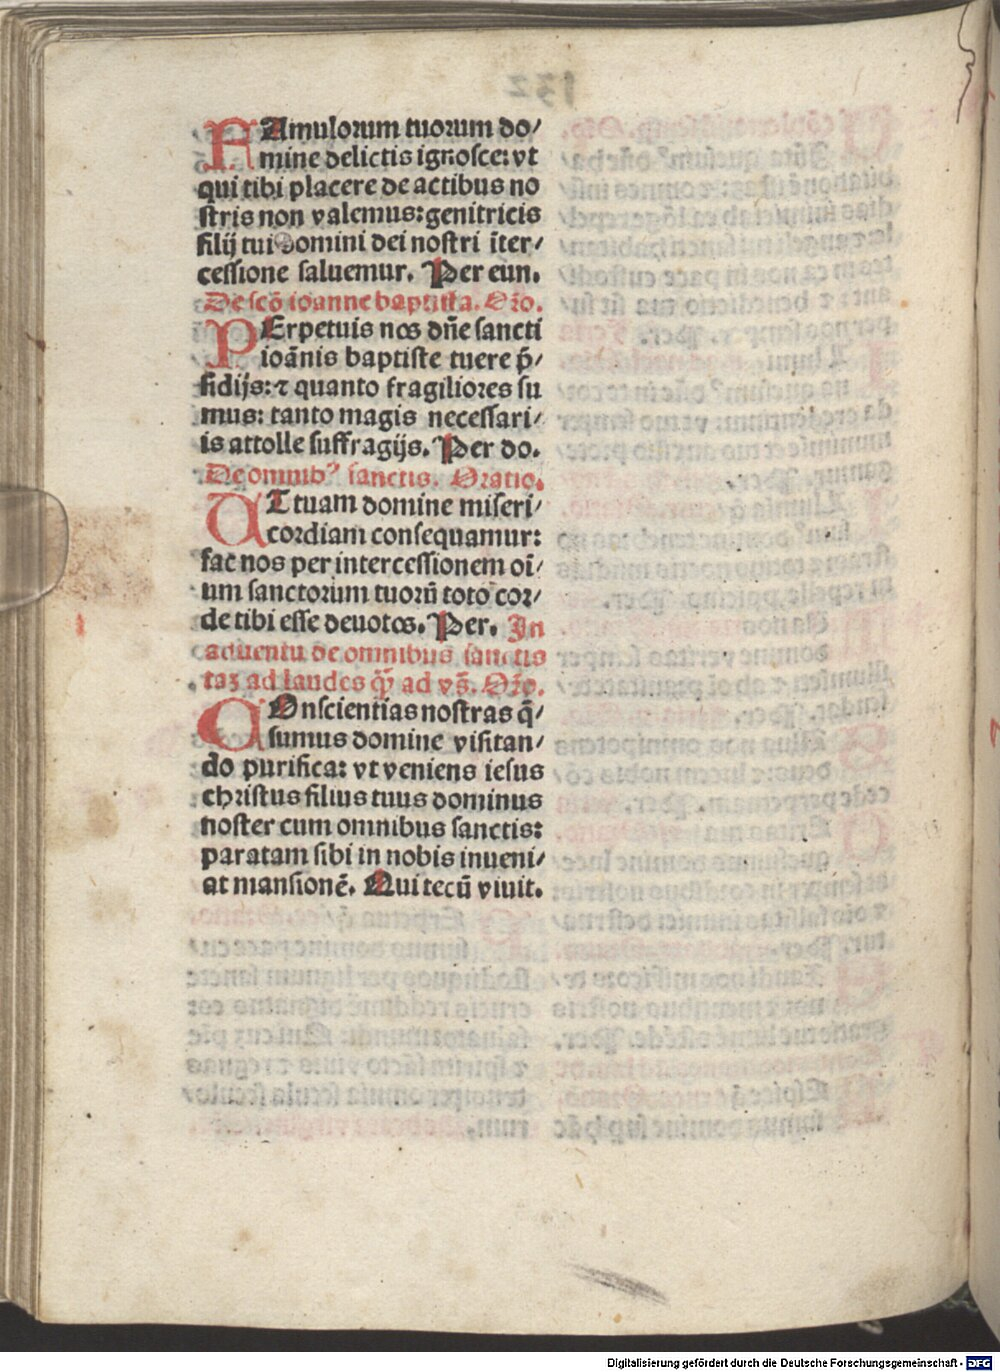 FAmulorum tuorum do/
mine delictis ignosce: vt
qui tibi placere de actibus no
stris non valemus: genitricis
filij tui domini dei nostri īter/
cessione saluemur. Per eun.
De scō ioanne baptista. Orō.
PErpetuis nos dn̄e sancti
ioānis baptiste tuere p̄/
sidijs: ⁊ quanto fragiliores su
mus: tanto magis necessari/
is attolle suffragijs. Per do.
De omnibꝰ sanctis. Oratio.
UT tuam domine miseri/
cordiam consequamur:
fac nos per intercessionem oī/
um sanctorum tuorū toto cor/
de tibi esse deuotos. Per. In
aduentu de omnibus sanctis
taʒ ad laudes ꝙ̄ ad vs̄. Orō.
COnscientias nostras q̄/
sumus domine visitan/
do purifica: vt veniens iesus
christus filius tuus dominus
noster cum omnibus sanctis:
paratam sibi in nobis inueni/
at mansionē. Qui tecū viuit.
Digitalisierung gefördert durch die Deutsche Forschungsgemeinschaft - DFG